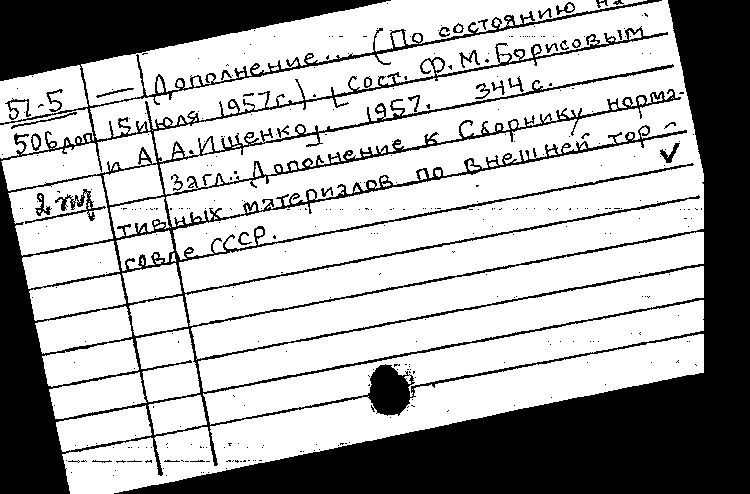 57-5
506 доп
2 эк
— Дополнение... (По состоянию на
15 июля 1957г.). [Сост. Ф. М. Борисовым
и А. А. Ищенко]. 1957. 344 с.
Загл.: Дополнение к Сборнику норма-
тивных материалов по внешней тор-
говле СССР.